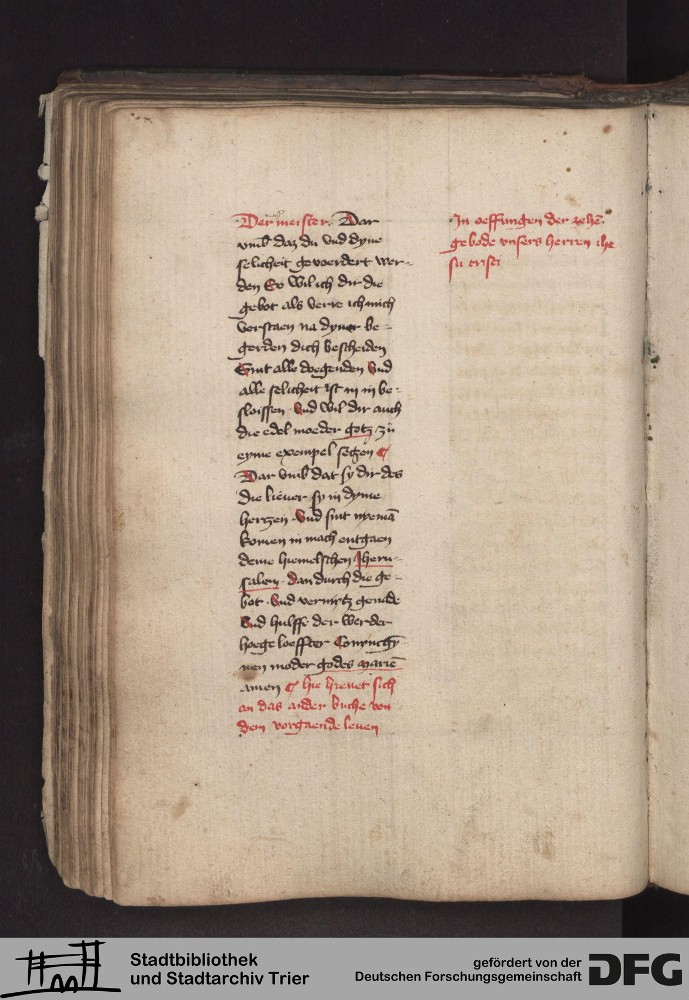 Der meister. Dar
vmb daz du vnd dyne
selicheit gevoerdert wer-
den So wil ich dir die
gebot als verre ich mich
verstaen na dyner be-
gerden dich bescheiden
Sint alle doegenden vnd
alle selicheit ist in in be-
sloissen. Vnd wil dir auch
die edel moeder gotz zů
eyme exempel setzen
Dar vmb dat sy dir des
die liever sy in dyme
hertzen. Vnd sint nyemā
komen in mach entgaen
deme hiemelschen Iheru-
salem. dan durch die ge-
bot. Vnd vermytz genade
Vnd hulffe der werder
hoege loeffter
nen moder godes marie
amen hie hevet sich
an das ander buche von
dem vorgaende leuen
In oeffungen der zehē
gebode vnsers herren ihe
su cristi
Stadtbibliothek
und Stadtarchiv Trier
gefördert von der
Deutschen Forschungsgemeinschaft
DFG